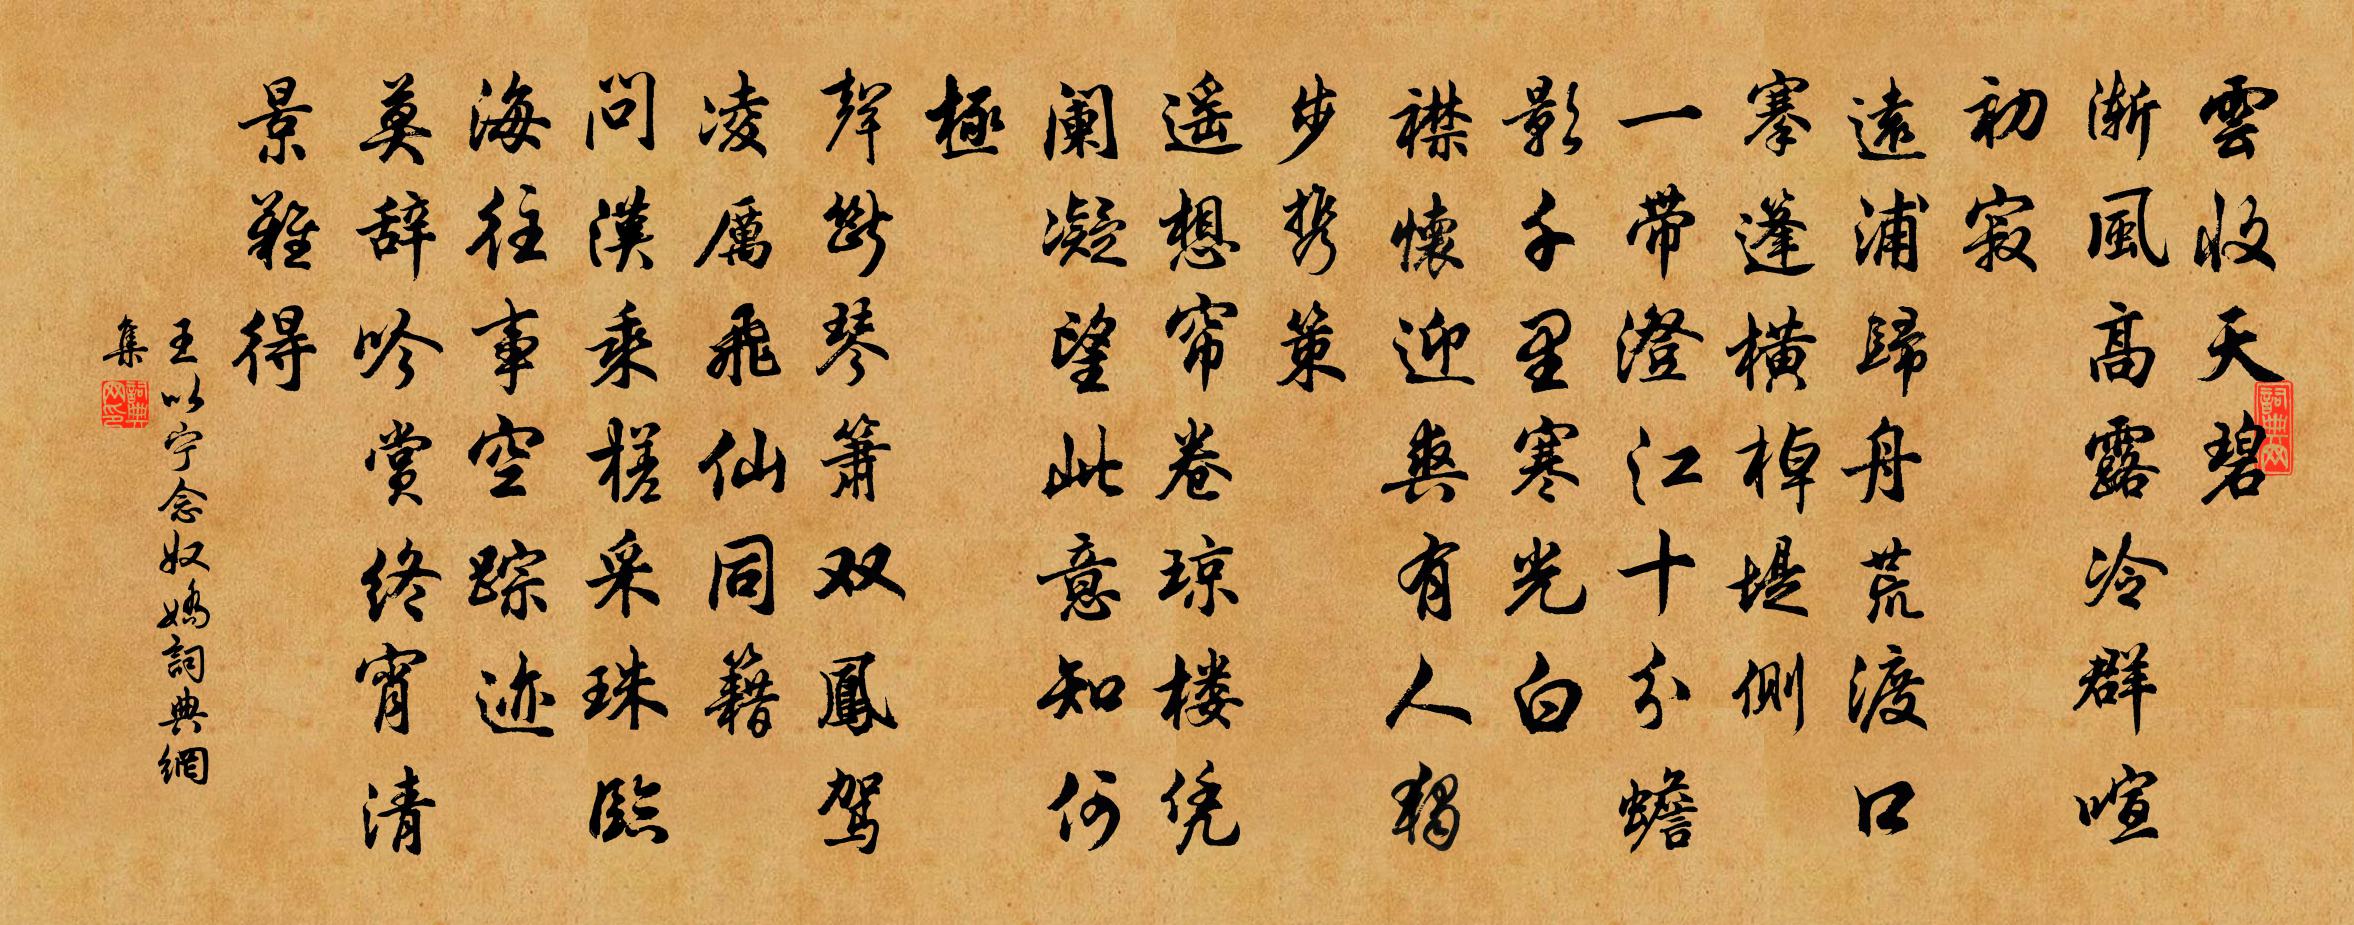 雲收天碧
漸風高露冷群喧
初寂
遠浦歸舟荒渡口
搴蓬橫棹堤側
一带澄江十分蟾
影千里寒光白
襟懷迎爽有人獨
步携策
遥想帘卷琼楼凭
阑凝望此意知何
極
聲斷琴箫双鳳驾
凌厲飛仙同籍
問漢乘槎采珠臨
海往事空踪迹
莫辞吟赏终宵清
景難得
王以宁念奴嬌詞典網
集
詞典网
詞典网印